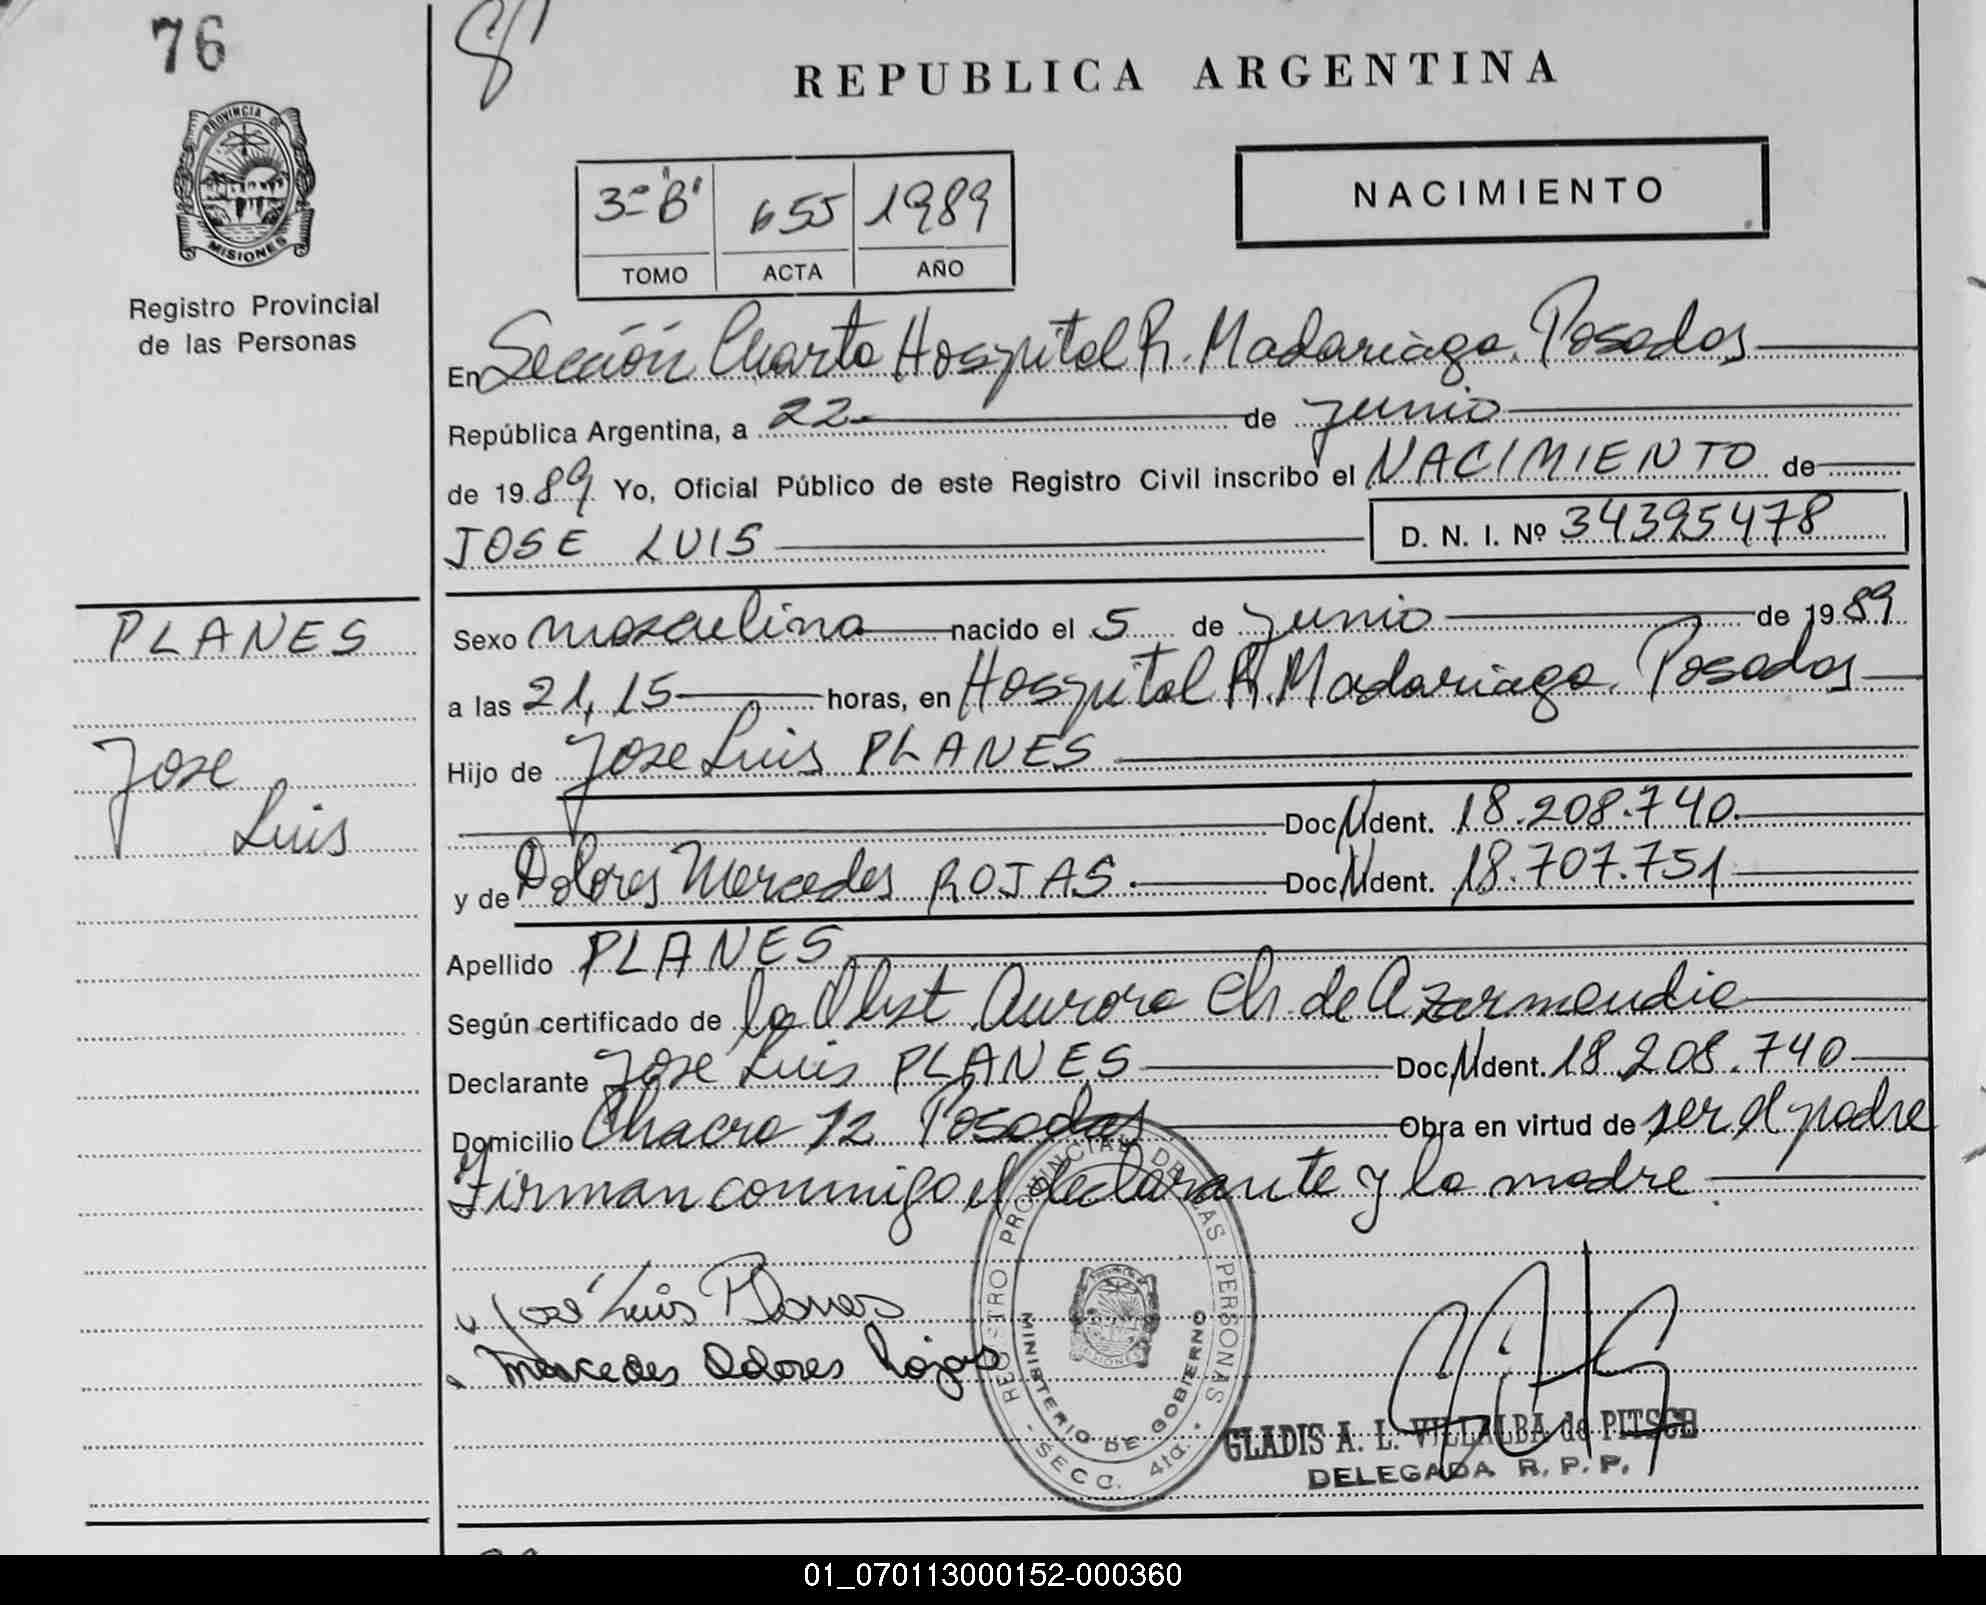 76
PROVINCIA DE
MISIONES
Registro Provincial
de las Personas
REPUBLICA ARGENTINA
3º "B" 655 1989
TOMO ACTA AÑO
NACIMIENTO
En Sección Cuarta Hospital R. Madariaga. Posadas
República Argentina, a 22 de junio
de 1989 Yo, Oficial Público de este Registro Civil inscribo el NACIMIENTO de
JOSE LUIS D. N. I. Nº 34395478
PLANES
Jose
Luis
Sexo masculino nacido el 5 de junio de 1989
a las 21,15 horas, en Hospital R. Madariaga. Posadas
Hijo de Jose Luis PLANES
Doc. Ident. 18.208.740
y de Dolores Mercedes ROJAS Doc. Ident. 18.707.751
Apellido PLANES
Según certificado de la Obst. Aurora Ch de Azarmendia
Declarante Jose Luis PLANES Doc. Ident. 18.208.740
Domicilio Chacra 12 Posadas Obra en virtud de ser el padre
Firman conmigo el declarante y la madre
José Luis Planes
Mercedes Dolores Rojas
REGISTRO PROVINCIAL DE LAS PERSONAS
MINISTERIO DE GOBIERNO
- SECC. 4ta. -
GLADIS A. L. VILLALBA de PITSCH
DELEGADA R. P. P.
01_070113000152-000360